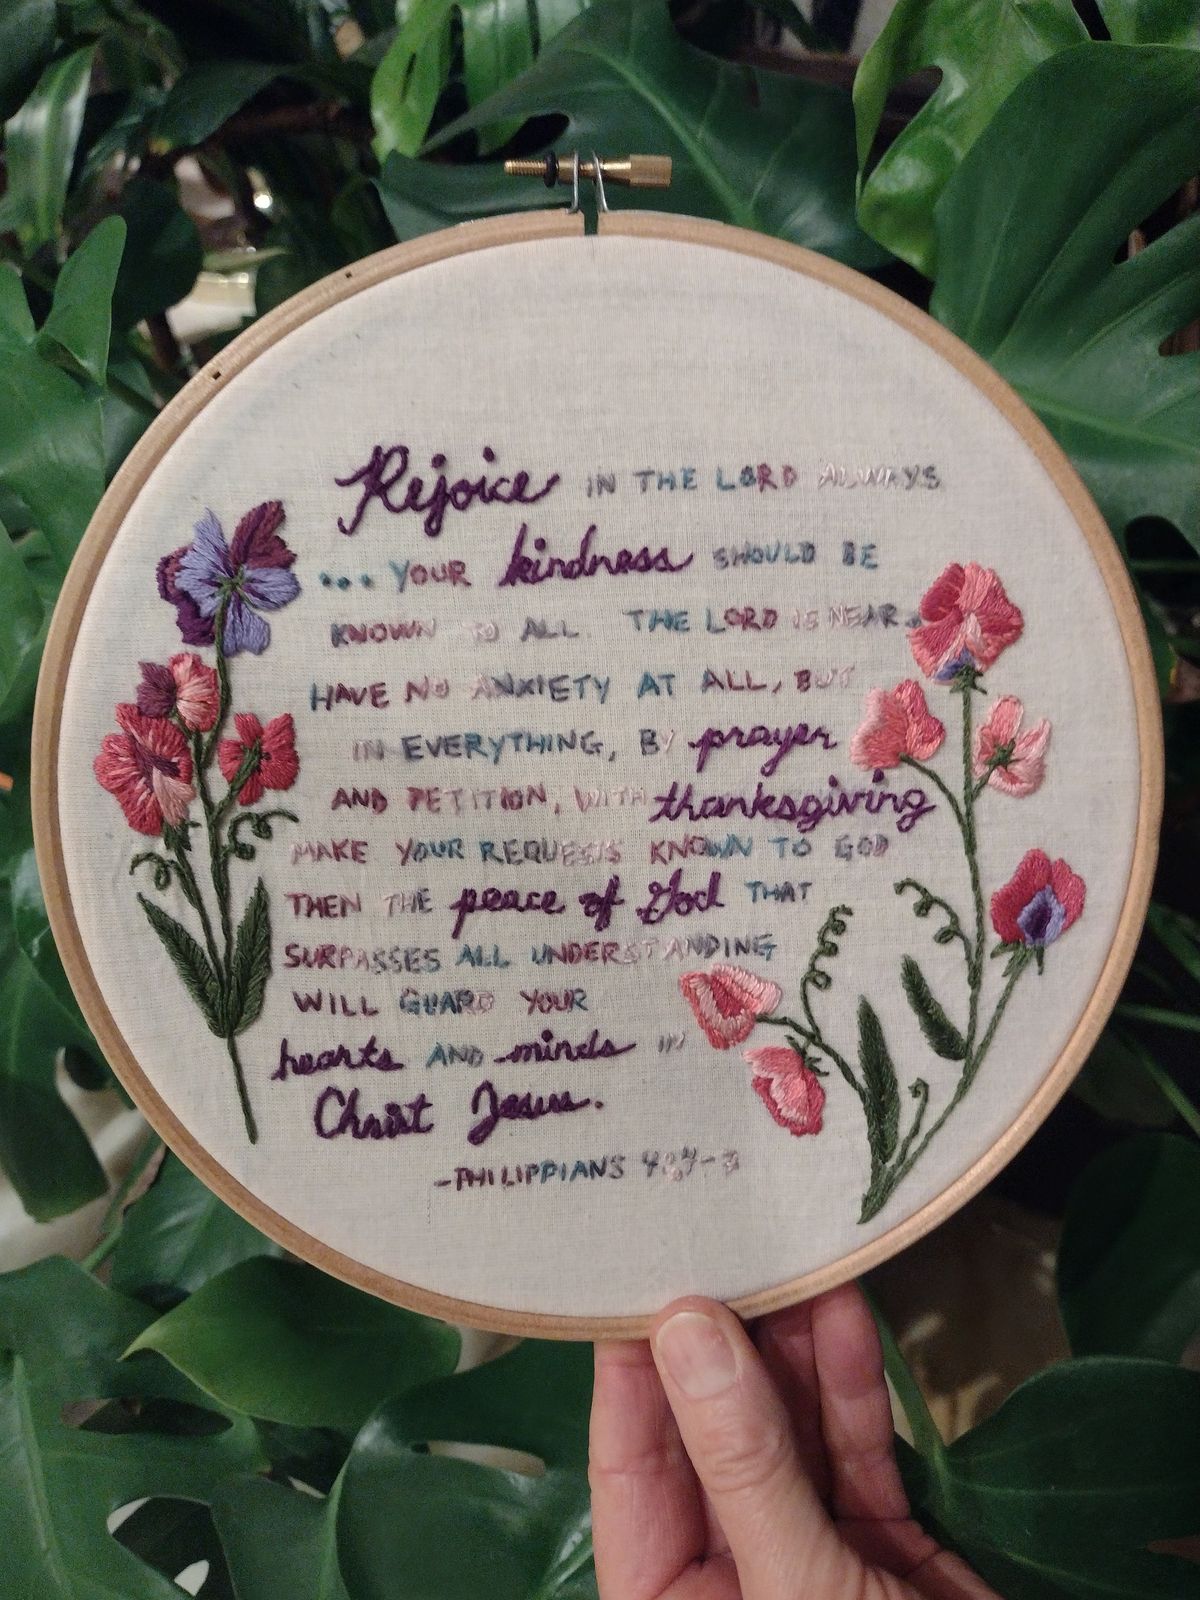 Rejoice IN THE LORD ALWAYS
... YOUR kindness SHOULD BE
KNOWN TO ALL. THE LORD IS NEAR.
HAVE NO ANXIETY AT ALL, BUT
IN EVERYTHING, BY prayer
AND PETITION, WITH thanksgiving
MAKE YOUR REQUESTS KNOWN TO GOD
THEN THE peace of God THAT
SURPASSES ALL UNDERSTANDING
WILL GUARD YOUR
hearts AND minds IN
Christ Jesus.
-PHILIPPIANS